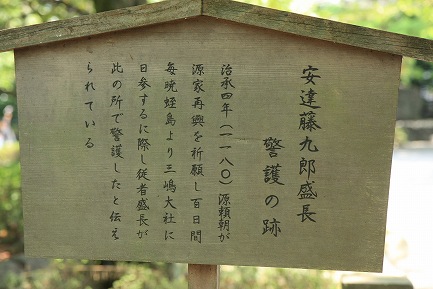 安達藤九郎盛長
警護の跡
治承四年(一一八〇)源頼朝が
源家再興を祈願し百日間
毎暁蛭島より三嶋大社に
日参するに際し従者盛長が
此の所で警護したと伝え
られている